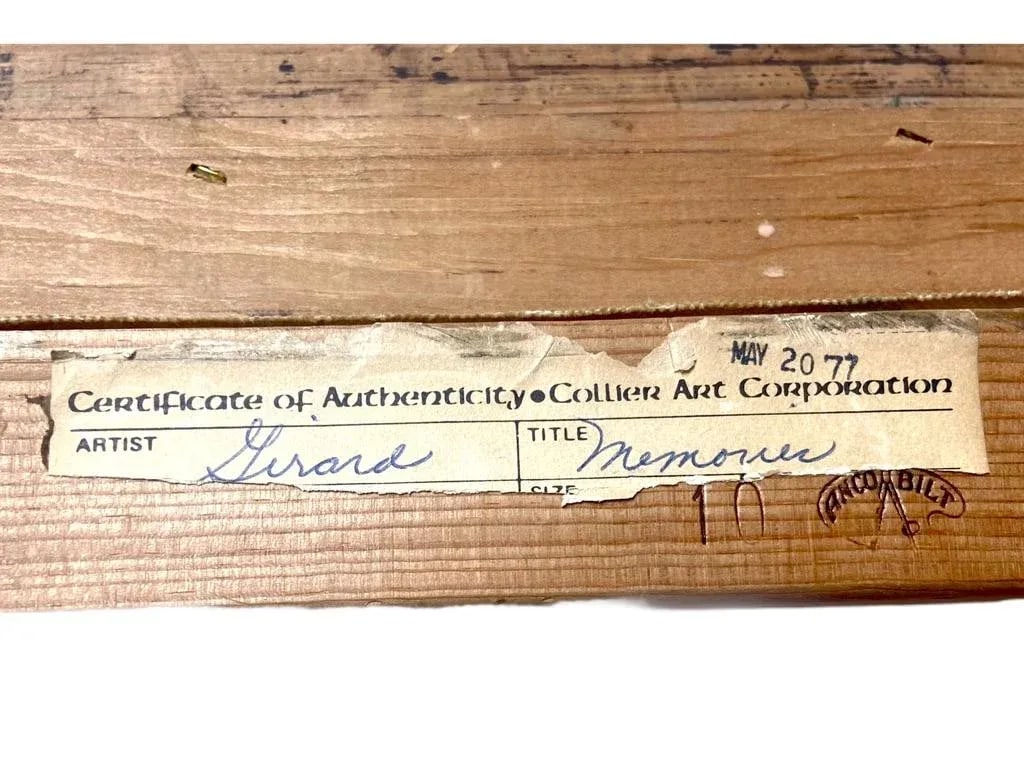 MAY 20 77
Certificate of Authenticity • Collier Art Corporation
ARTIST Girard TITLE Memories
SIZE
10 ANCO BILT